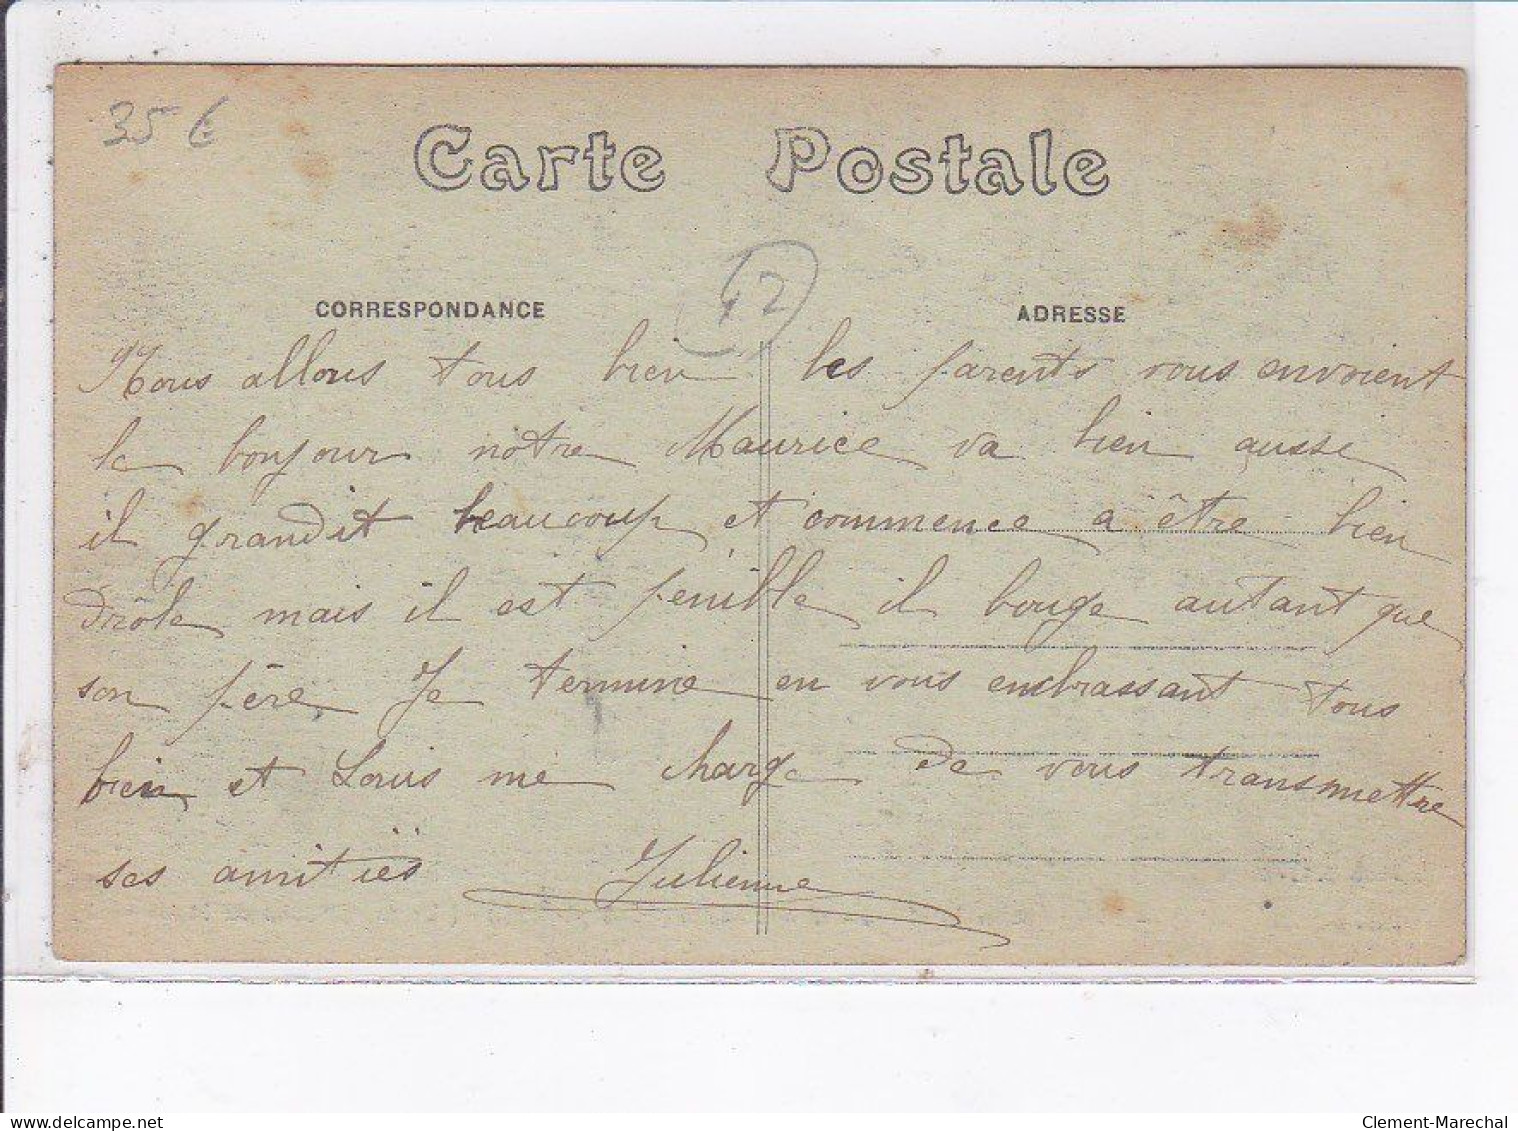 35 €
Carte Postale
12
CORRESPONDANCE
ADRESSE
Nous allons tous bien les parents vous envoient
le bonjour notre Maurice va bien ausse
il grandit beaucoup et commence a être bien
drôle mais il est penille il bouge autant que
son père Je termine en vous embrassant tous
bien et Louis me charge de vous transmettre
ses amitiés Julienne
delcampe.net
Clement-Marechal